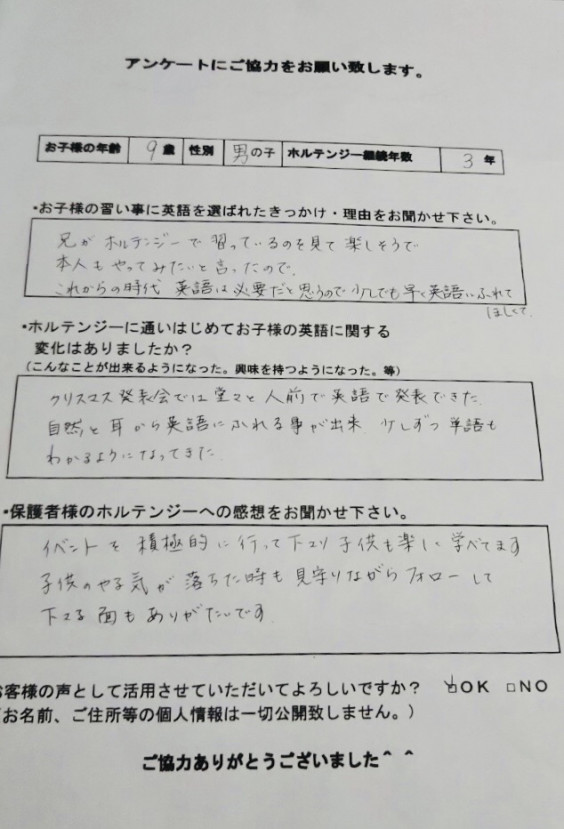 アンケートにご協力をお願い致します。
お子様の年齢 9歳 性別 男の子 ホルテンジー継続年数 3年
・お子様の習い事に英語を選ばれたきっかけ・理由をお聞かせ下さい。
兄が ホルテンジーで 習っているのを見て 楽しそうで
本人も やってみたいと 言ったので、
これからの時代 英語は必要だと思うので 少しでも早く英語にふれて
ほしくて、
・ホルテンジーに通いはじめてお子様の英語に関する
変化はありましたか？
（こんなことが出来るようになった。興味を持つようになった。等）
クリスマス発表会では 堂々と 人前で 英語で 発表できた
自然と 耳から英語にふれる事が出来、少しずつ 単語も
わかるようになってきた
・保護者様のホルテンジーへの感想をお聞かせ下さい。
イベントを 積極的に 行って下さり 子供も楽しく 学べてます
子供のやる気が 落ちた時も 見守りながら フォローして
下さる 面も ありがたいです
お客様の声として活用させていただいてよろしいですか？ ☑OK □NO
（お名前、ご住所等の個人情報は一切公開致しません。）
ご協力ありがとうございました＾＾